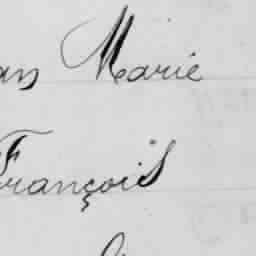 Marie
François